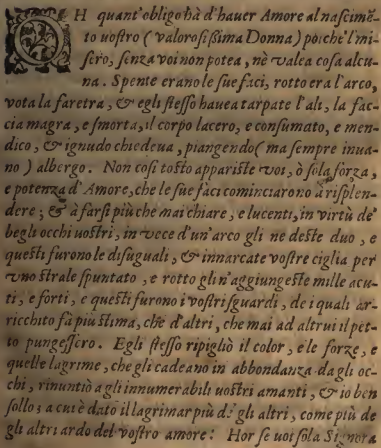 OH quant'obligo hà d'hauer Amore al nascimẽ-
to vostro (valorosissima Donna) poiche l'mi-
sero, senza voi non potea, nè valea cosa alcu-
na. Spente erano le sue faci, rotto era l'arco,
vota la faretra, & egli stesso hauea tarpate l'ali, la fac-
cia magra, e smorta, il corpo lacero, e consumato, e men-
dico, & ignudo chiedeua, piangendo (ma sempre inua-
no) albergo. Non cosi tosto appariste voi, ò sola forza,
e potenza d'Amore, che le sue faci cominciarono à risplen-
dere; & à farsi più che mai chiare, e lucenti, in virtù de'
begli occhi vostri, in vece d'un'arco gli ne deste duo, e
questi furono le disuguali, & innarcate vostre ciglia per
vno strale spuntato, e rotto gli n'aggiungeste mille acu-
ti, e forti, e questi furono i vostri sguardi, de i quali ar-
ricchito fà più stima, che d'altri, che mai ad altrui il pet-
to pungessero. Egli stesso ripigliò il color, e le forze, e
quelle lagrime, che gli cadeano in abbondanza da gli oc-
chi, rinuntiò a gli innumerabili vostri amanti, & io ben
sollo; a cui è dato il lagrimar più de gli altri, come più de
gli altri ardo del vostro amore: Hor se voi sola Signora